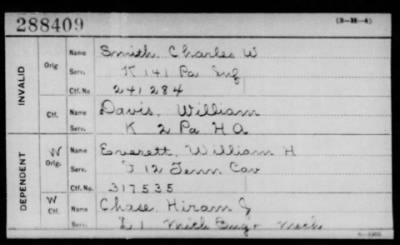 288409
(3-M-4)
INVALID
Orig Name Smith, Charles W
Serv. K 141 Pa Inf
Ctf. No 241284
Ctf. Name Davis, William
Serv. K 2 Pa H A
DEPENDENT
W Orig. Name Everett, William H
Serv. 12 Tenn Cav
Ctf. No. 317535
W Ctf. Name Chase, Hiram
Serv. L 1 Mich Eng r Mech